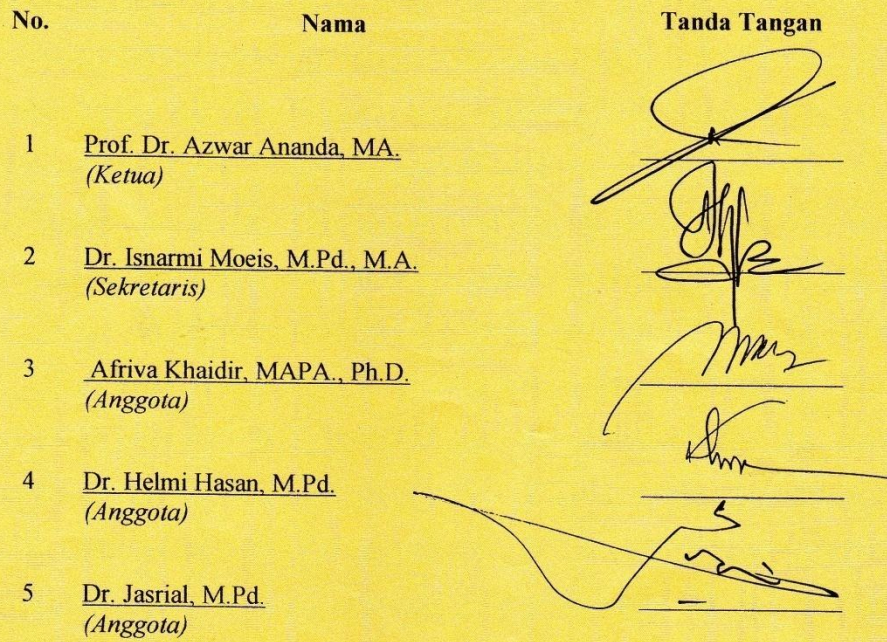 No. Nama Tanda Tangan
1 Prof. Dr. Azwar Ananda, MA.
(Ketua)
2 Dr. Isnarmi Moeis, M.Pd., M.A.
(Sekretaris)
3 Afriva Khaidir, MAPA., Ph.D.
(Anggota)
4 Dr. Helmi Hasan, M.Pd.
(Anggota)
5 Dr. Jasrial, M.Pd.
(Anggota)